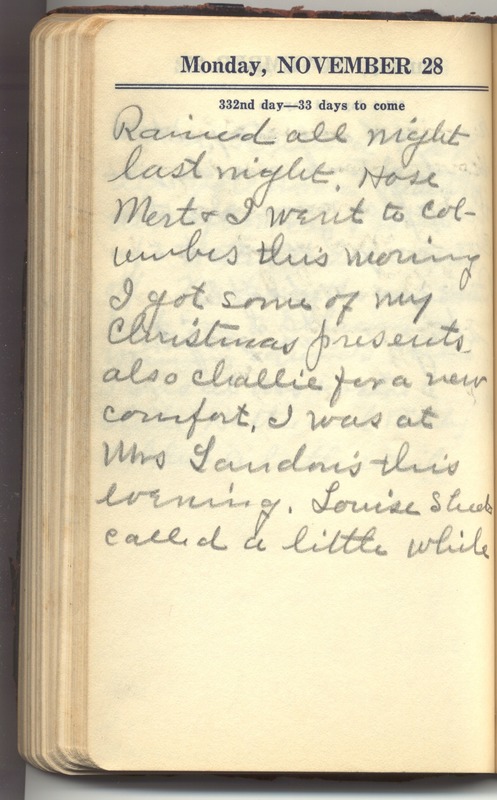 Monday, NOVEMBER 28
332nd day—33 days to come
Rained all night
last night. Hose
Mert & I went to Col-
umbis this moring
I got some of my
Christmas presents
also challie for a new
comfort. I was at
Mrs Landon's this
evening. Louise
called a little while